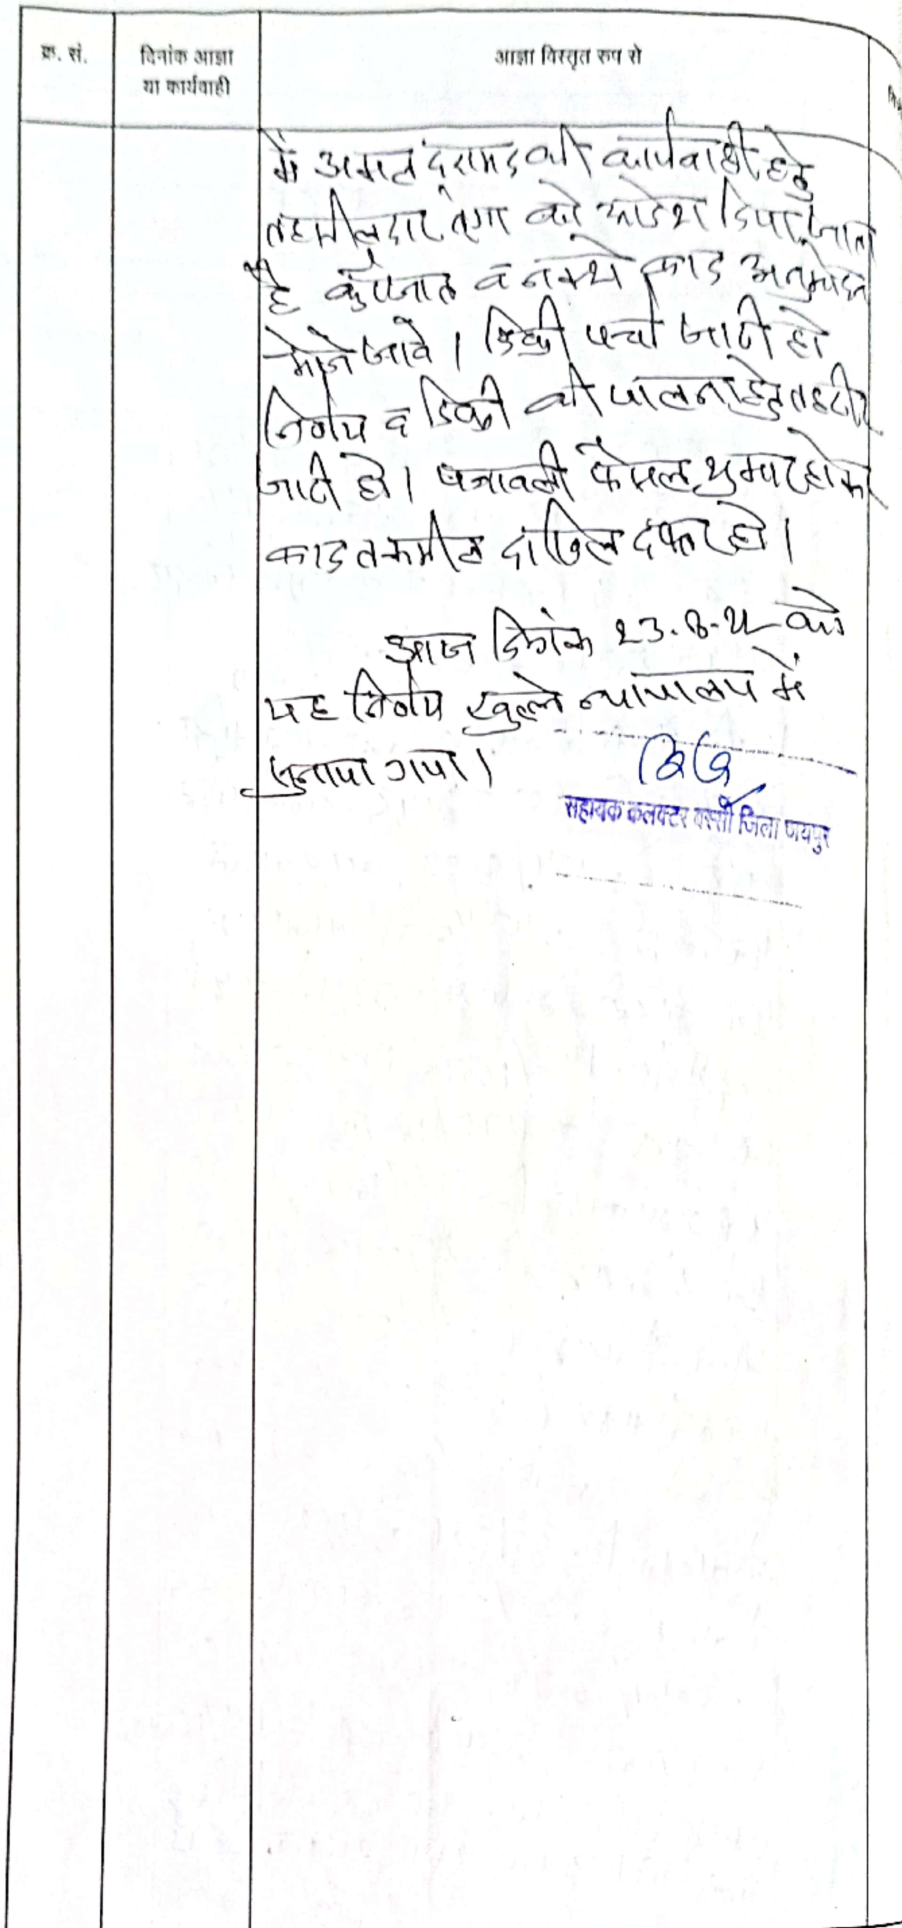 क्र. सं.
दिनांक आज्ञा
या कार्यवाही
आज्ञा विस्तृत रुप से
में अमल दरामद की कार्यवाही हेतु
तहसीलदार, तूंगा को आदेश दिया जाता
है कुर्रेजात व नक्शे बाद अनुमोदन
भेजे जावे। डिक्री पर्चा जारी हो
निर्णय व डिक्री की पालना हेतु तहरीर
जारी हो। पत्रावली फैसल शुमार होकर
बाद तकमील दाखिल दफ्तर हो।
आज दिनांक को
यह निर्णय खुल्ले न्यायालय में
सुनाया गया।
सहायक कलक्टर बस्सी जिला जयपुर